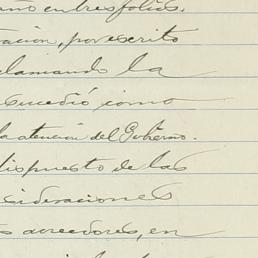 año en tres folios.
tación, por escrito
clamando la
sucedió como
la atención del Gobierno.
dispuesto de las
sideraciones
s acreedores, en